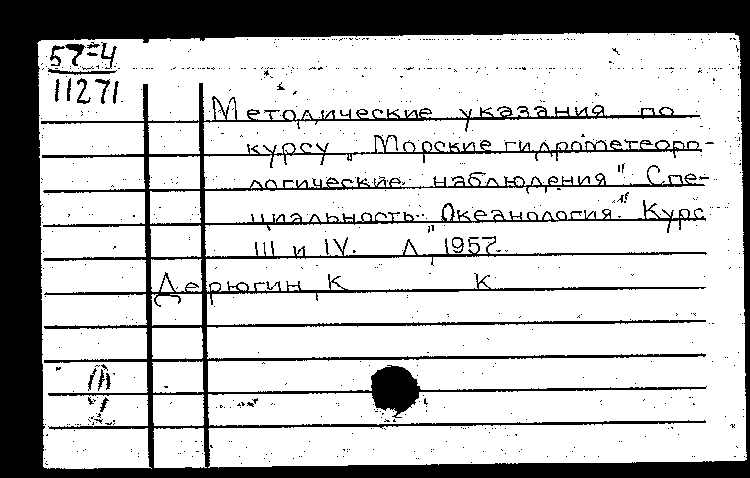 57-4
11271
Методические указания по
курсу „Морские гидрометеоро-
логические наблюдения". Спе-
циальность „Океанология". Курс
III и IV. Л., 1957.
Дерюгин, К К